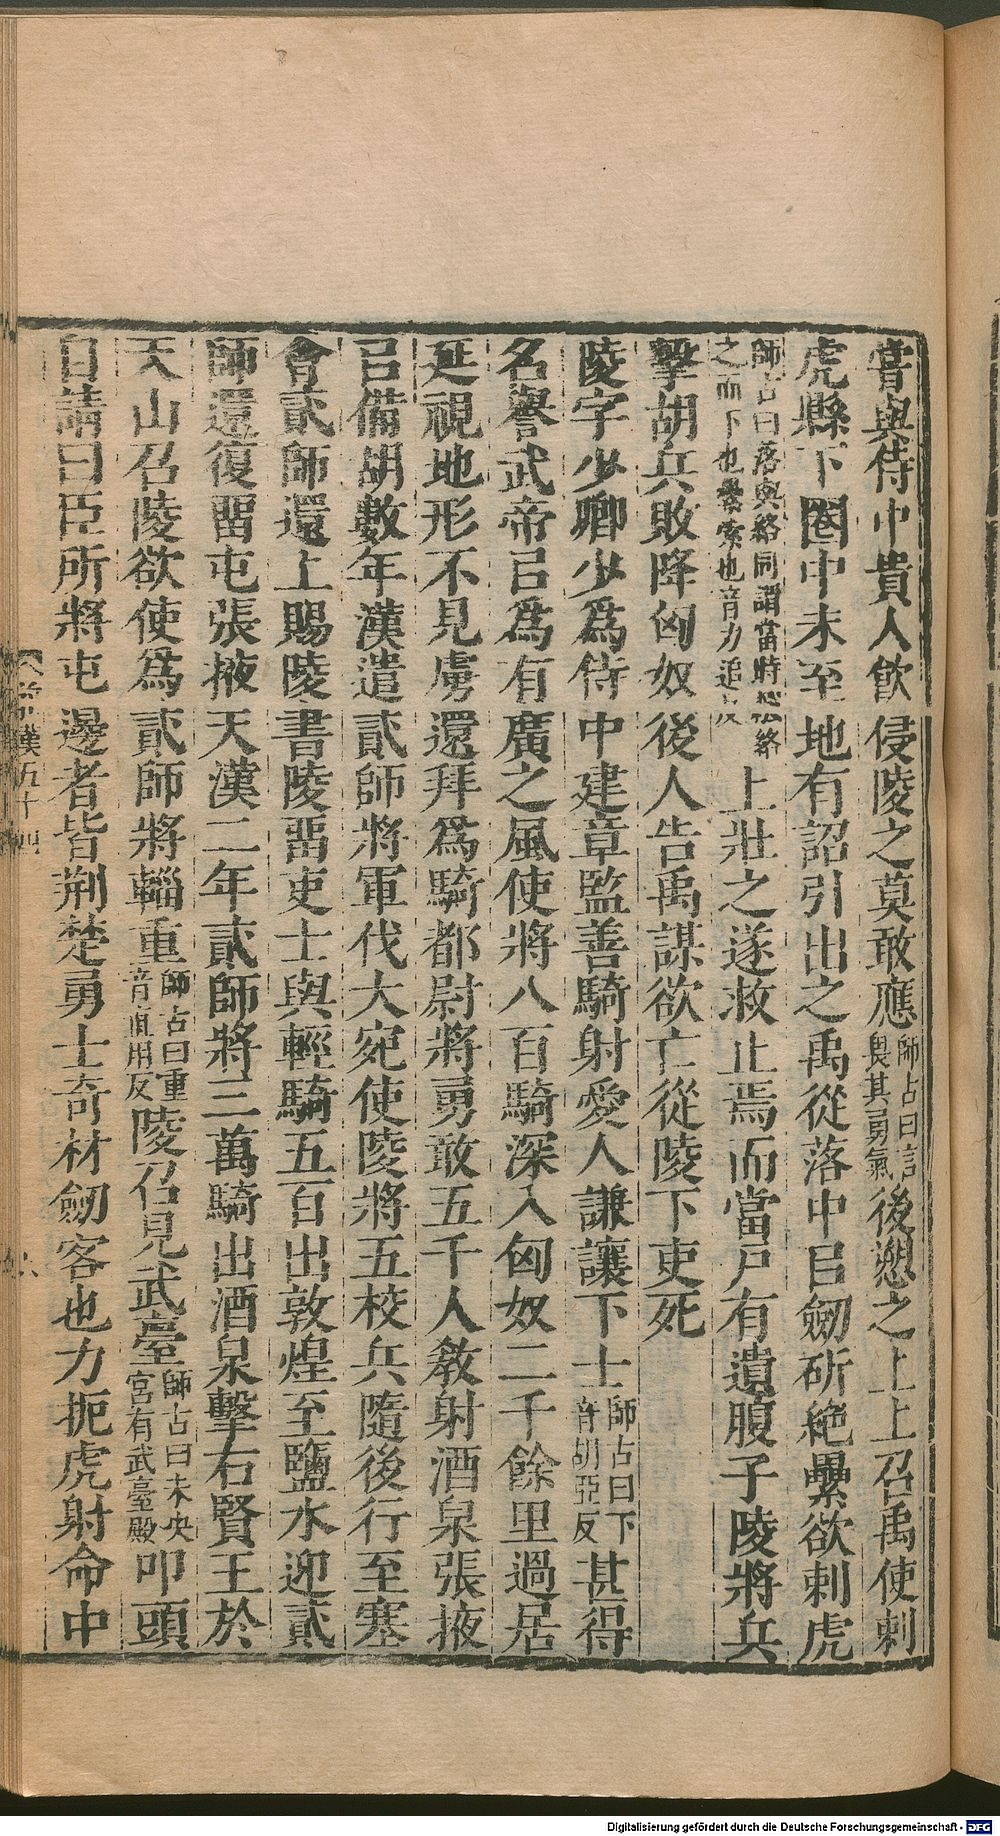 嘗與侍中貴人飲侵陵之莫敢應師古曰言畏其勇氣後愬之上上召禹使刺
虎縣下圈中未至地有詔引出之禹從落中㠯劒斫絕纍欲刺虎
師古曰落與絡同謂當時纏絡之而下也纍索也音力追反上壯之遂救止焉而當戶有遺腹子陵將兵
擊胡兵敗降匈奴後人告禹謀欲亡從陵下吏死
陵字少卿少爲侍中建章監善騎射愛人謙讓下士師古曰下音胡亞反甚得
名譽武帝㠯爲有廣之風使將八百騎深入匈奴二千餘里過居
延視地形不見虜還拜爲騎都尉將勇敢五千人敎射酒泉張掖
㠯備胡數年漢遣貳師將軍伐大宛使陵將五校兵隨後行至塞
會貳師還上賜陵書陵畱吏士與輕騎五百出敦煌至鹽水迎貳
師還復畱屯張掖天漢二年貳師將三萬騎出酒泉擊右賢王於
天山召陵欲使爲貳師將輜重師古曰重音直用反陵召見武臺師古曰未央宮有武臺殿叩頭
自請曰臣所將屯邊者皆荆楚勇士奇材劒客也力扼虎射命中
漢五十四
六
Digitalisierung gefördert durch die Deutsche Forschungsgemeinschaft - DFG